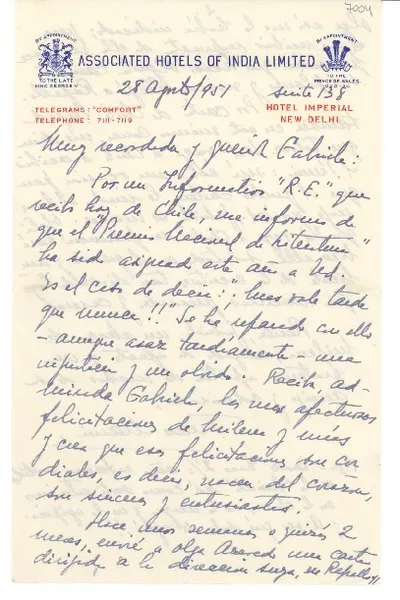 7004
BY APPOINTMENT
TO THE LATE
KING GEORGE V
ASSOCIATED HOTELS OF INDIA LIMITED
BY APPOINTMENT
TO THE
PRINCE OF WALES
28 Agosto/951
Suite 138
TELEGRAMS: "COMFORT"
TELEPHONE: 7111-7119
HOTEL IMPERIAL
NEW DELHI
Muy recordada y querida Gabriela:
Por un Informativo "R.E." que
recibo hoy de Chile, me informo de
que el "Premio Nacional de Literatura"
ha sido asignado este año a Ud.
Es el caso de decir: "¡Mas vale tarde
que nunca!!" Se ha reparado con ello
- aunque asaz tardíamente - una
injusticia y un olvido. Reciba, ad-
mirada Gabriela, las mas afectuosas
felicitaciones de Milena y mías
y crea que esas felicitaciones son cor
diales, es decir, nacen del corazón,
son sinceras y entusiastas.
Hace unas semanas o quizás 2
meses, envié a Olga Acevedo una carta
dirigida a la dirección suya, en Rapallo,